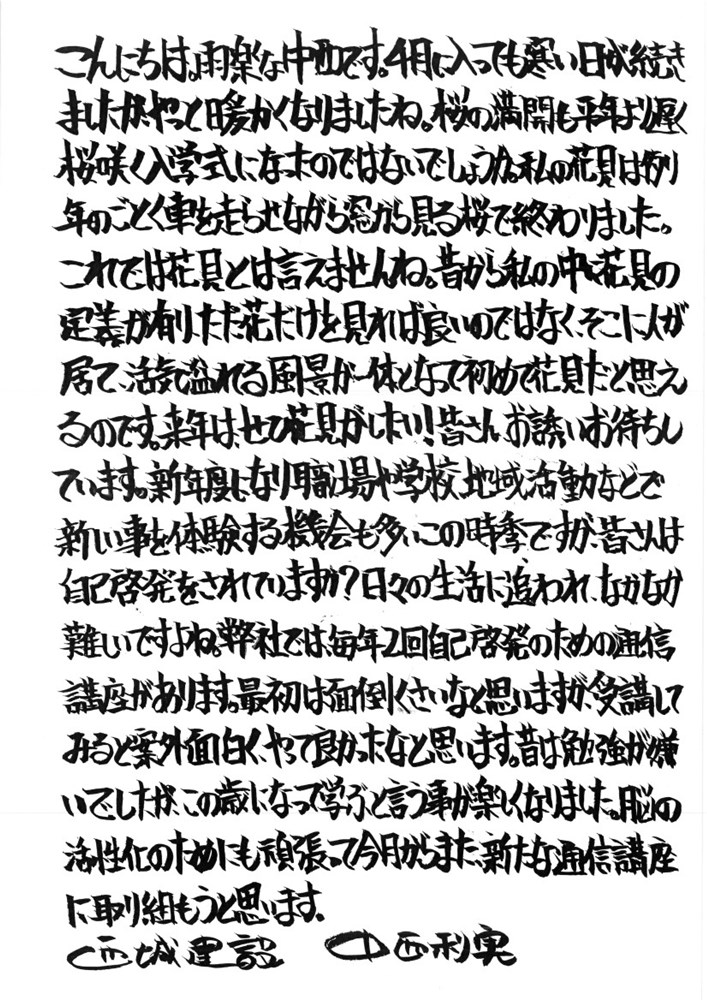 こんにちは。雨楽な中西です。4月に入っても寒い日が続き
ましたが、やっと暖かくなりましたね。桜の満開も平年より遅く
桜咲く入学式になったのではないでしょうか。私の花見は例
年のごとく車を走らせながら窓から見る桜で終わりました。
これでは花見とは言えませんね。昔から私の中に花見の
定義が有り、ただ花だけを見れば良いのではなく、そこに人が
居て、活気溢れる風景が一体となって初めて花見だと思え
るのです。来年は、ぜひ花見がしたい！皆さん、お誘いお待ちし
ています。新年度になり職場や学校、地域活動などで
新しい事を体験する機会も多いこの時季ですが、皆さんは
自己啓発をされていますか？日々の生活に追われ、なかなか
難しいですよね。弊社では、毎年2回自己啓発のための通信
講座があります。最初は面倒くさいなと思いますが、受講して
みると案外面白く、やって良かったなと思います。昔は勉強が嫌
いでしたが、この歳になって学ぶと言う事が楽しくなりました。脳の
活性化のためにも頑張って今月からまた、新たな通信講座
に取り組もうと思います。
西城建設 中西利実